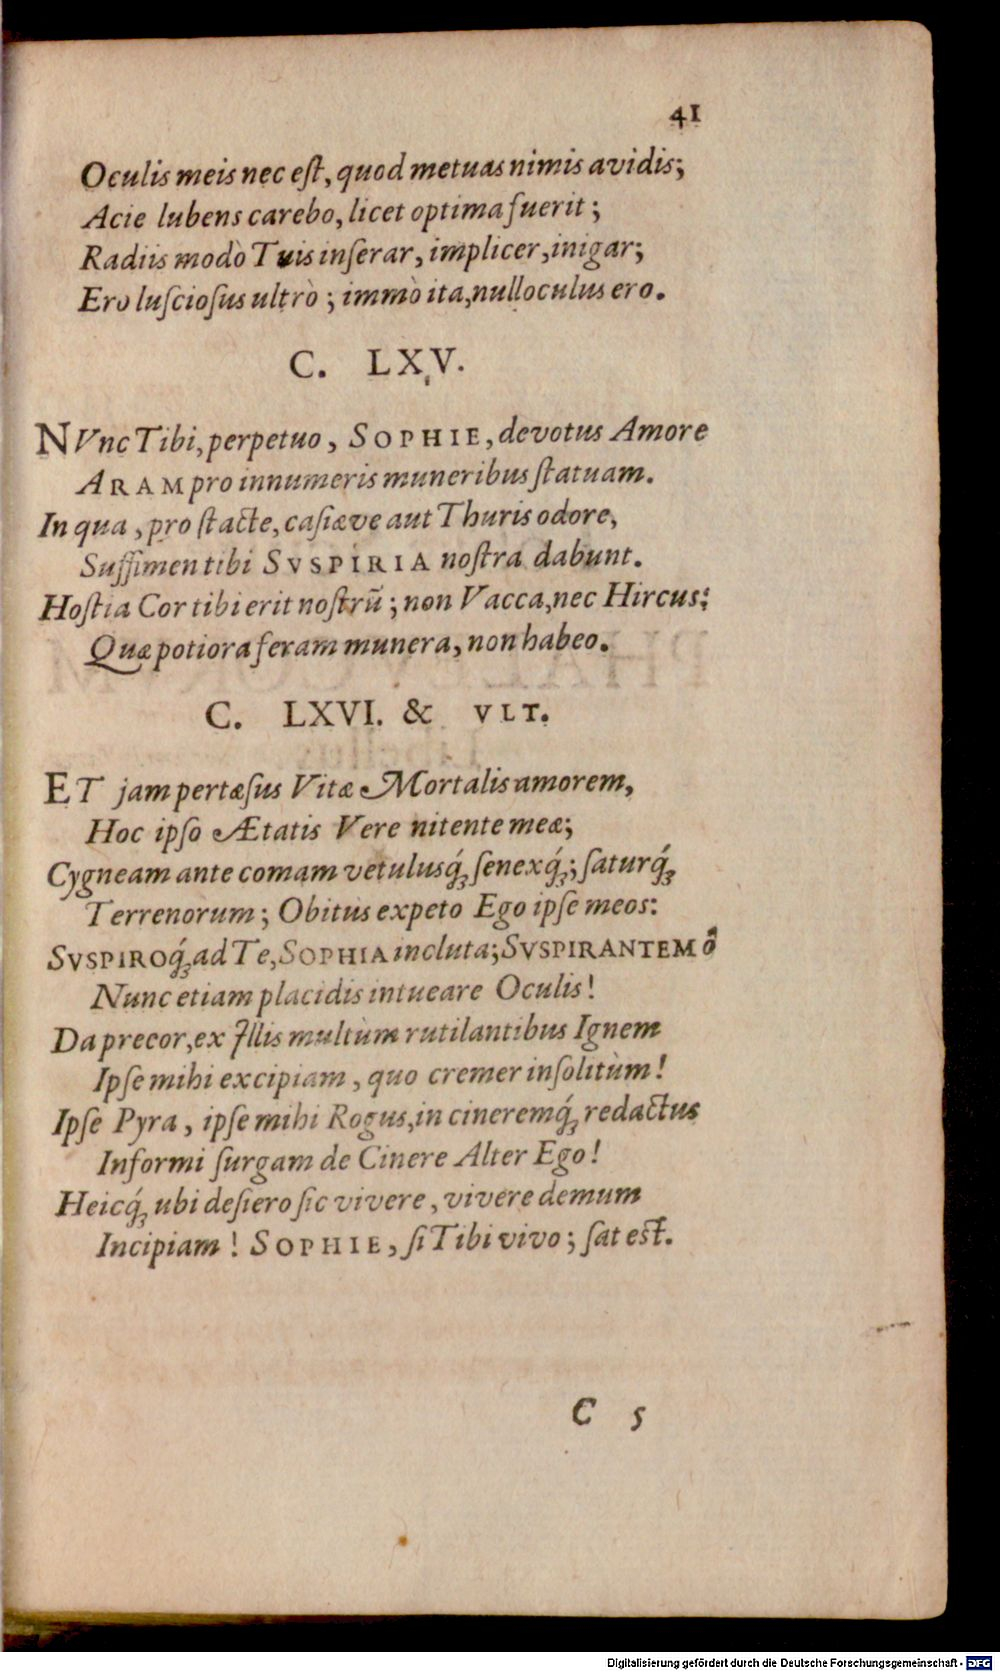 41
Oculis meis nec eſt, quod metuas nimis avidis;
Acie lubens carebo, licet optima fuerit;
Radiis modò Tuis inſerar, implicer, inigar;
Ero luſcioſus ultrò; immò ita, nulloculus ero.
C. LXV.
NVnc Tibi, perpetuo, SOPHIE, devotus Amore
ARAM pro innumeris muneribus ſtatuam.
In qua, pro ſtacte, caſiæve aut Thuris odore,
Suffimen tibi SVSPIRIA noſtra dabunt.
Hoſtia Cor tibi erit noſtrū; non Vacca, nec Hircus:
Quæ potiora feram munera, non habeo.
C. LXVI. & VLT.
ET jam pertæſus Vitæ Mortalis amorem,
Hoc ipſo Ætatis Vere nitente meæ;
Cygneam ante comam vetulusq́ꝫ ſenexq́ꝫ; ſaturq́ꝫ
Terrenorum; Obitus expeto Ego ipſe meos:
SVSPIROq́ꝫ ad Te, SOPHIA incluta; SVSPIRANTEM ô
Nunc etiam placidis intueare Oculis!
Da precor, ex Illis multùm rutilantibus Ignem
Ipſe mihi excipiam, quo cremer inſolitùm!
Ipſe Pyra, ipſe mihi Rogus, in cineremq́ꝫ redactus
Informi ſurgam de Cinere Alter Ego!
Heicq́ꝫ ubi deſiero ſic vivere, vivere demum
Incipiam! SOPHIE, ſi Tibi vivo; ſat eſt.
C 5
Digitalisierung gefördert durch die Deutsche Forschungsgemeinschaft - DFG